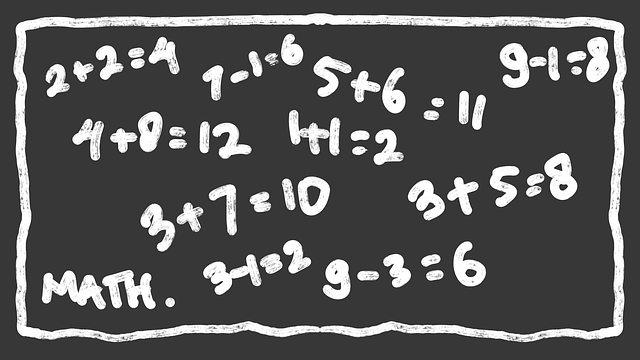 2+2=4
7-1=6
5+6=11
9-1=8
4+8=12
1+1=2
3+7=10
3+5=8
MATH.
3-1=2
9-3=6